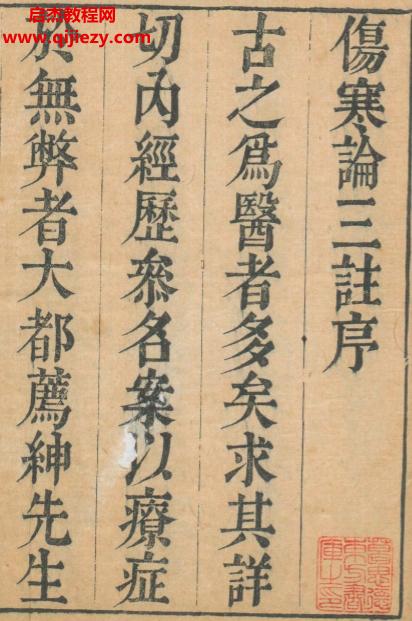 启杰教程网
www.qijiezy.com
傷寒論三註序
古之爲醫者多矣求其詳
切內經歷叅名案以療症
於無弊者大都薦紳先生